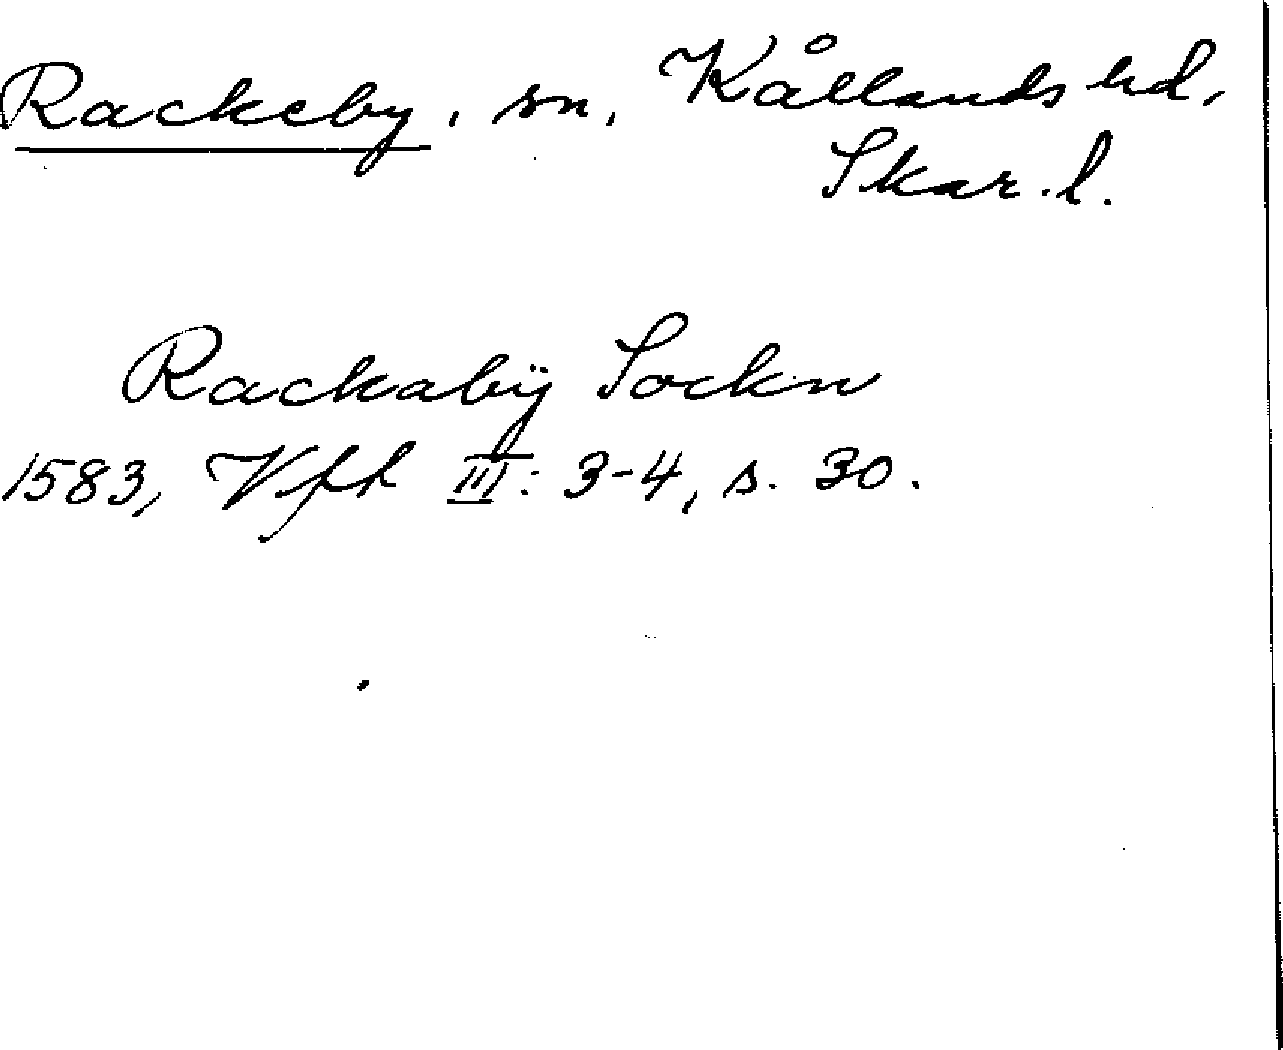 Rackeby, sn, Kållands hd,
Skar. l.
Rackabÿ Sockn
1583, Vfh III: 3-4, s. 30.